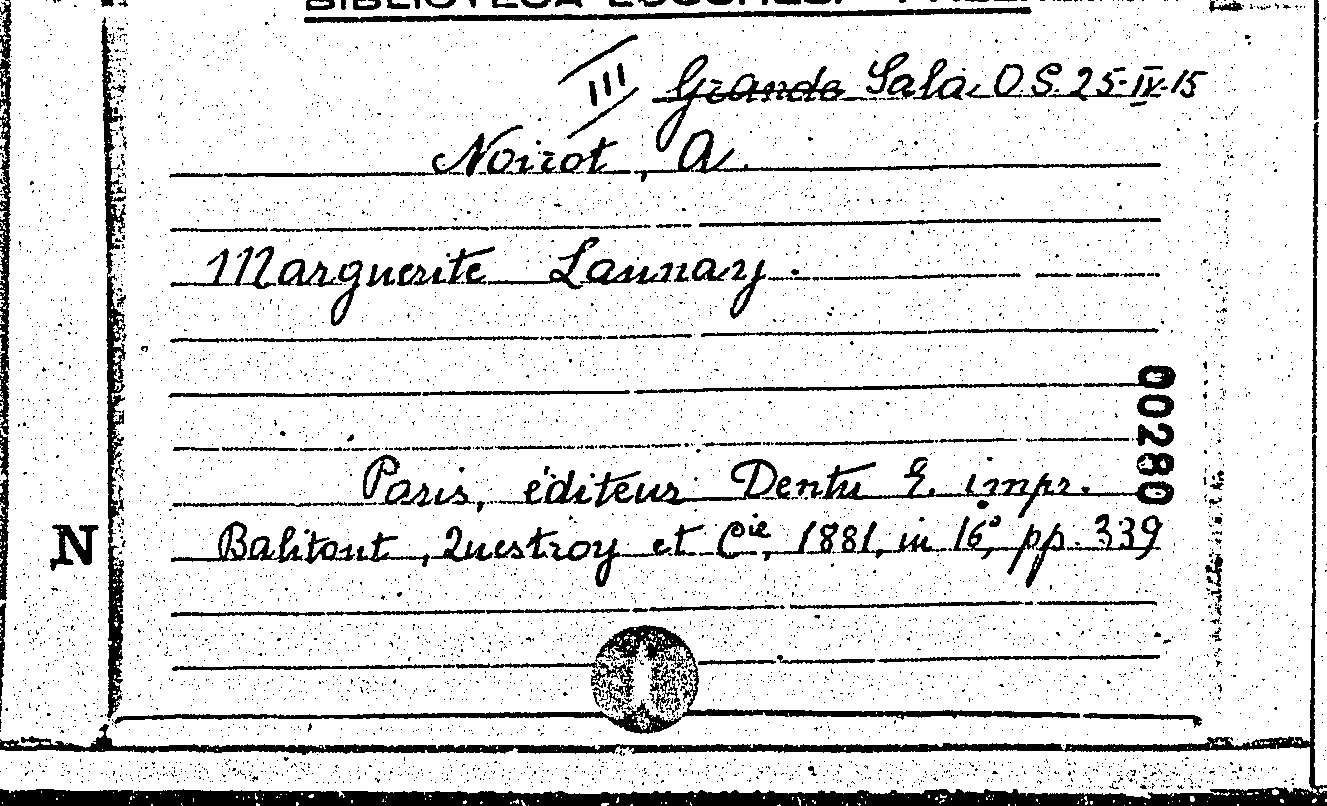 III ~~Grande~~ Sala, O.S. 25-IV-15
Noirot, A.
Marguerite Launay.
00280
Paris, éditeur Dentu E. impr.
N
Balitout, Questroy et Cie, 1881, in 16°, pp. 339